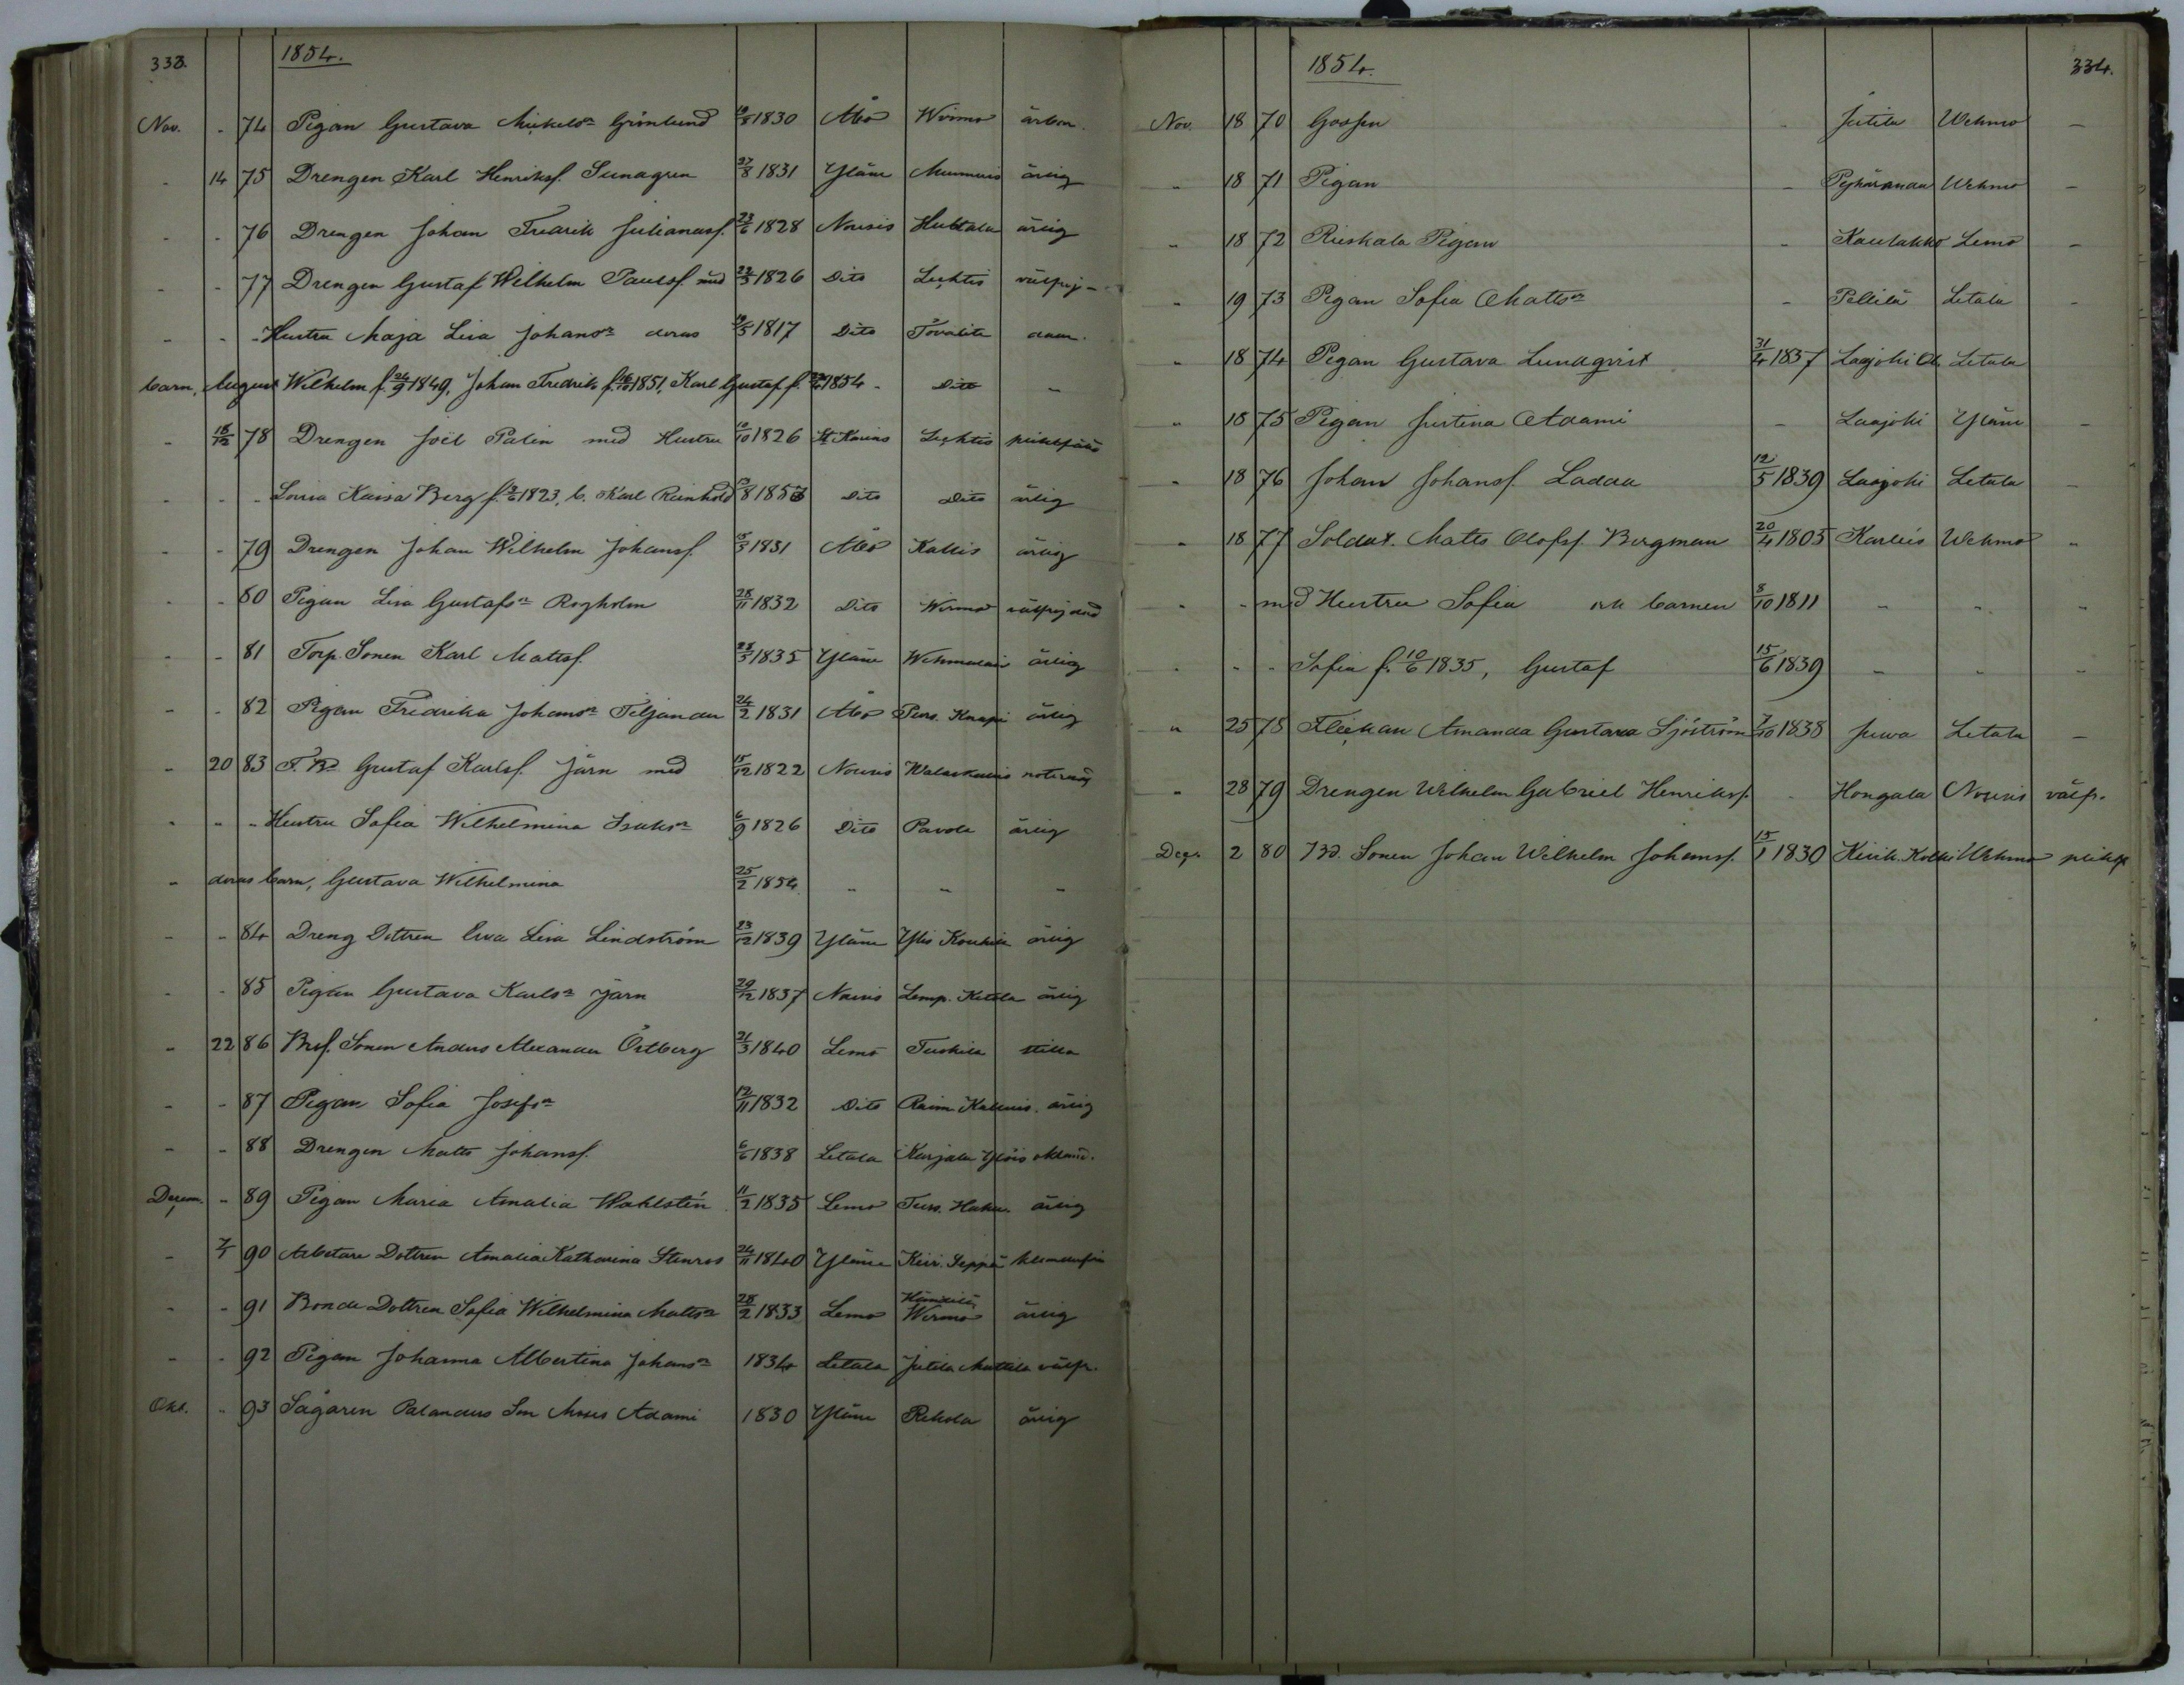 333.
1854.
Nov. - 74 Pigan Gustava Mickelsn Grönlund 10/8 1830 Åbo Wirmo
- 14 75 Drengen Karl Henriksf. Sunagren 27/8 1831 Yläne ärlig
- - 76 Drengen Johan Fredrik Julianasf. 23/6 1828 Nousis Huttala ärlig
- - 77 Drengen Gustaf Wilhelm Paulsf. med 22/3 1826 Dito Lechtis välfrej-
- - - Hustru Maja Lisa Johansn deras 1817 Dito Tovalita
barn, August Wilhelm f. 24/9 1849, Johan Fredrik f. 1851, Karl Gustaf f. 1854 - Dito -
- 18/12 78 Drengen Joël Palin med Hustru 10/10 1826 St Karins Lechtis
- - - Lovisa Kaisa Berg f. 1823, b. Karl Reinhold 1853 Dito Dito ärlig
- - 79 Drengen Johan Wilhelm Johansf. 1831 Åbo Kallis ärlig
- - 80 Pigan Lisa Gustafsn Rogholm 28/11 1832 Dito Wirmo välfrejdad
- - 81 Torp. Sonen Karl Mattsf. 1835 Yläne ärlig
- - 82 Pigan Fredrika Johansn Tiljander 24/2 1831 Åbo ärlig
- 20 83 Gustaf Karlsf. Järn med 15/12 1822 Nousis
- - - Hustru Sofia Wilhelmina Isaksn 6/9 1826 Dito Pavola ärlig
- deras barn, Gustava Wilhelmina 25/2 1854 - - -
- - 84 Dreng Dottren Eva Lisa Lindström 23/12 1839 Yläne Ylis ärlig
- - 85 Pigan Gustava Karlsn Järn 29/12 1837 Nousis Lemp. Ketola ärlig
- 22 86 Sonen Anders Alexander Östberg 21/3 1840 Lemo Tuskila stilla
- - 87 Pigan Sofia Josefsn 12/11 1832 Dito ärlig
- - 88 Drengen Matts Johansf. 6/6 1838 Letala Karjala
Decem. - 89 Pigan Maria Amalia Wahlstén 11/2 1835 Lemo ärlig
- 7/1 90 Arbetare Dottren Amalia Katharina Stenros 24/11 1840 Yläne
- - 91 Bonde Dottren Sofia Wilhelmina Mattsn 28/2 1833 Lemo Wirmo ärlig
- - 92 Pigan Johanna Albertina Johansn 1834 Letala Jutila Mattila välfr.
Okt. - 93 Sågaren Palanders Son Moses Adami 1830 Yläne Rekola ärlig
1854.
334.
Nov. 18 70 Gossen - Jutila Wehmo -
- 18 71 Pigan - Wehmo -
- 18 72 Rieskala Pigan - Kaulakko Lemo -
- 19 73 Pigan Sofia Mattsn - Pellilä Letala -
- 18 74 Pigan Gustava Lundqvist 31/4 1837 Laajoki Letala
- 18 75 Pigan Justina Adami - Laajoki Yläne -
- 18 76 Johan Johansf. Ladau 12/5 1839 Laajoki Letala -
- 18 77 Soldat. Matts Olofsf. Bergman 20/4 1805 Wehmo -
- - med Hustru Sofia och barnen 8/10 1811 - - -
- - - Sofia f. 10/6 1835, Gustaf 15/6 1839 - - -
- 25 78 Flickan Amanda Gustava Sjöström 7/10 1838 Juva Letala -
- 28 79 Drengen Wilhelm Gabriel Henriksf. - Hongala Nousis välfr.
Decr. 2 80 Bd. Sonen Johan Wilhelm Johansf. 15/1 1830 Wehmo